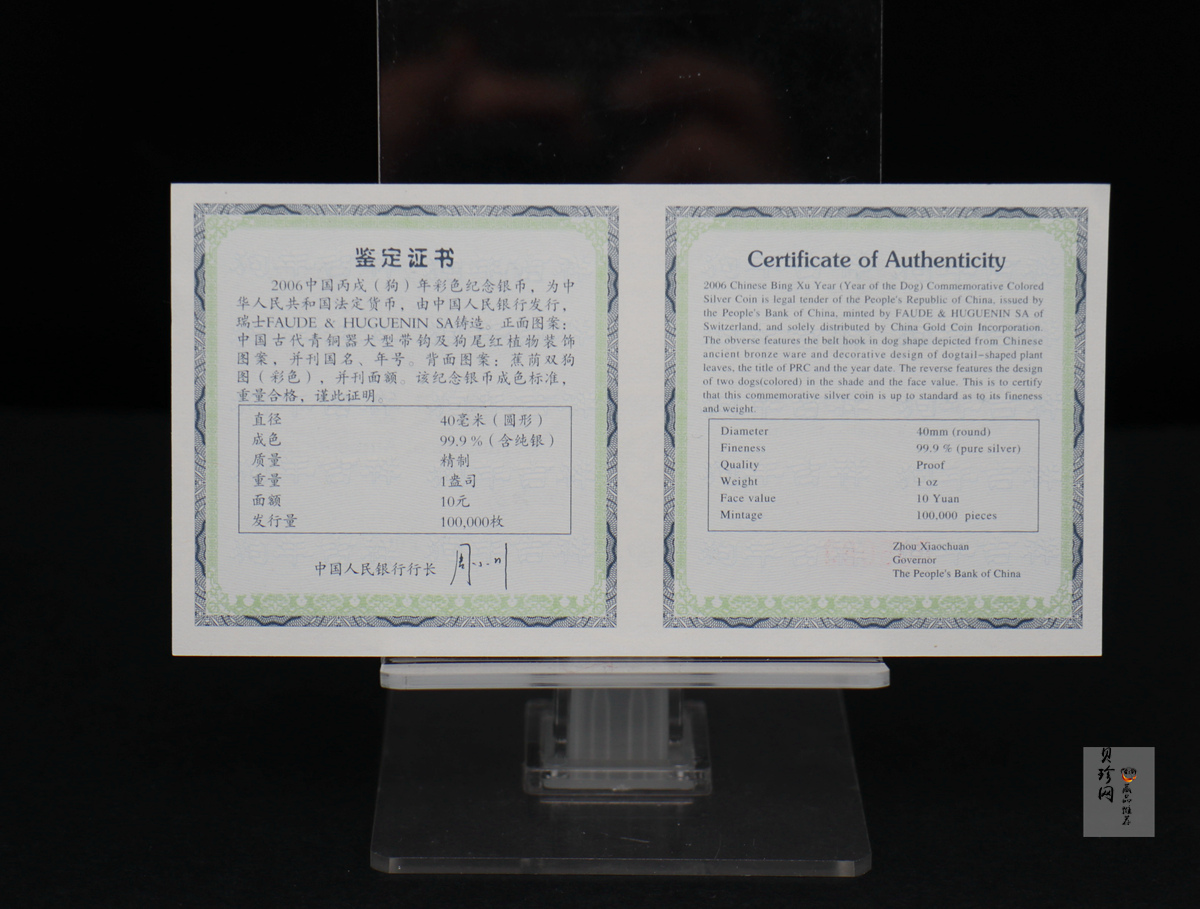 鉴定证书
2006中国丙戌（狗）年彩色纪念银币，为中
华人民共和国法定货币，由中国人民银行发行，
瑞士FAUDE & HUGUENIN SA铸造。正面图案：
中国古代青铜器犬型带钩及狗尾红植物装饰
图案，并刊国名、年号。背面图案：蕉荫双狗
图（彩色），并刊面额。该纪念银币成色标准，
重量合格，谨此证明。
直径 40毫米（圆形）
成色 99.9％（含纯银）
质量 精制
重量 1盎司
面额 10元
发行量 100,000枚
中国人民银行行长 周小川
Certificate of Authenticity
2006 Chinese Bing Xu Year (Year of the Dog) Commemorative Colored
Silver Coin is legal tender of the People's Republic of China, issued by
the People's Bank of China, minted by FAUDE & HUGUENIN SA of
Switzerland, and solely distributed by China Gold Coin Incorporation.
The obverse features the belt hook in dog shape depicted from Chinese
ancient bronze ware and decorative design of dogtail-shaped plant
leaves, the title of PRC and the year date. The reverse features the design
of two dogs(colored) in the shade and the face value. This is to certify
that this commemorative silver coin is up to standard as to its fineness
and weight.
Diameter 40mm (round)
Fineness 99.9 % (pure silver)
Quality Proof
Weight 1 oz
Face value 10 Yuan
Mintage 100,000 pieces
Zhou Xiaochuan
Governor
The People's Bank of China
贝珍网
藏品推荐